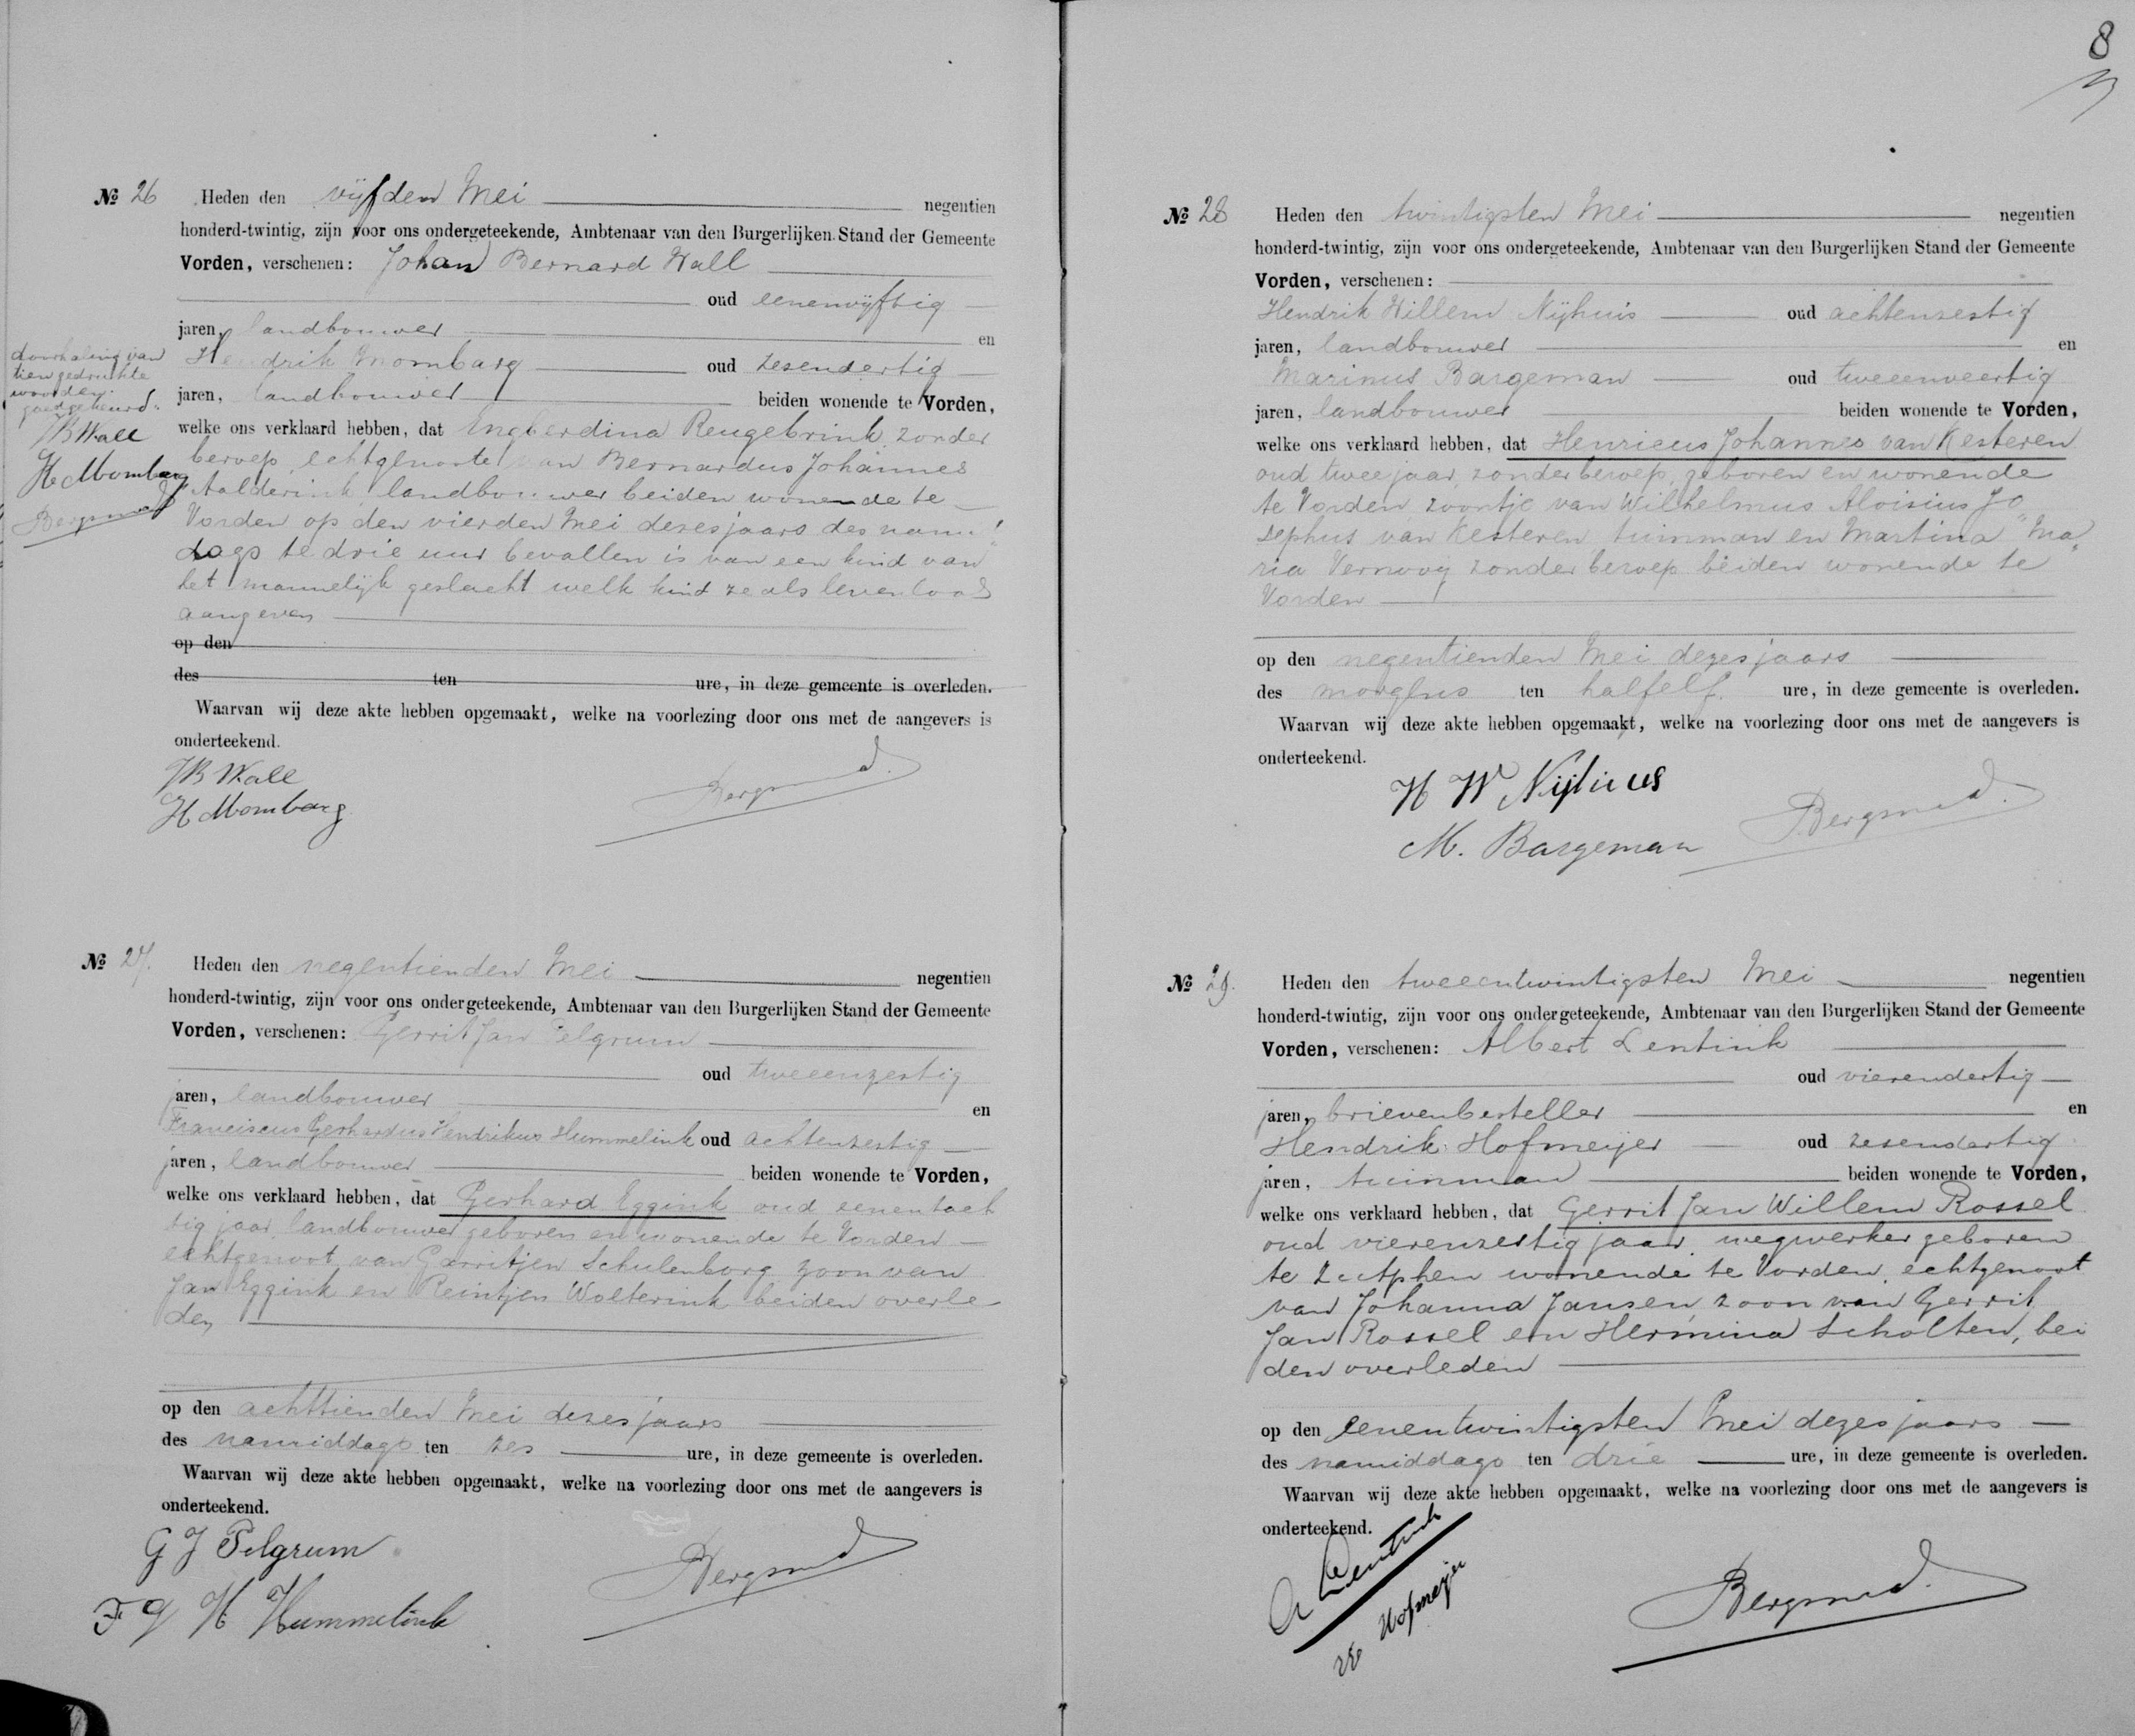 8
№ 26 Heden den vijfden Mei negentien
honderd-twintig, zijn voor ons ondergeteekende, Ambtenaar van den Burgerlijken Stand der Gemeente
Vorden, verschenen: Johan Bernard Wall
oud eenenvijftig
jaren, landbouwer en
Hendrik Mombarg oud zesendertig
jaren, landbouwer beiden wonende te Vorden,
welke ons verklaard hebben, dat Engberdina Reugebrink zonder
beroep, echtgenoote van Bernardus Johannes
Aalderink landbouwer beiden wonende te
Vorden op den vierden Mei dezes jaars des nami
dags te drie uur bevallen is van een kind van
het mannelijk geslacht welk kind ze als levenloos
aangeven
op den
des ten ure, in deze gemeente is overleden.
Waarvan wij deze akte hebben opgemaakt, welke na voorlezing door ons met de aangevers is
onderteekend.
JB Wall
H Mombarg
Bergsma
doorhaling van
tien gedrukte
woorden
goedgekeurd.
JB Wall
H Mombarg
Bergsma
№ 27. Heden den negentienden Mei negentien
honderd-twintig, zijn voor ons ondergeteekende, Ambtenaar van den Burgerlijken Stand der Gemeente
Vorden, verschenen: Gerrit Jan Pelgrum
oud tweeenzestig
jaren, landbouwer en
Franciscus Gerhardus Hendrikus Hummelink oud achtenzestig
jaren, landbouwer beiden wonende te Vorden,
welke ons verklaard hebben, dat Gerhard Eggink oud eenentach
tig jaar, landbouwer geboren en wonende te Vorden
echtgenoot van Garritjen Schulenborg zoon van
Jan Eggink en Reintjen Wolterink beiden overle
den
op den achttienden Mei dezes jaars
des namiddags ten zes ure, in deze gemeente is overleden.
Waarvan wij deze akte hebben opgemaakt, welke na voorlezing door ons met de aangevers is
onderteekend.
G J Pelgrum
F G H Hummelink
Bergsma
№ 28 Heden den twintigsten Mei negentien
honderd-twintig, zijn voor ons ondergeteekende, Ambtenaar van den Burgerlijken Stand der Gemeente
Vorden, verschenen:
Hendrik Willem Nijhuis oud achtenzestig
jaren, landbouwer en
Marinus Bargeman oud tweeenveertig
jaren, landbouwer beiden wonende te Vorden,
welke ons verklaard hebben, dat Henricus Johannes van Kesteren
oud twee jaar, zonder beroep, geboren en wonende
te Vorden zoontje van Wilhelmus Aloisius Jo
sephus van Kesteren tuinman en Martina Ma„
ria Vernooij zonder beroep beiden wonende te
Vorden
op den negentienden Mei dezes jaars
des morgens ten half elf ure, in deze gemeente is overleden.
Waarvan wij deze akte hebben opgemaakt, welke na voorlezing door ons met de aangevers is
onderteekend.
H W Nijhuis
M. Bargeman
Bergsma
№ 29. Heden den tweeentwintigsten Mei negentien
honderd-twintig, zijn voor ons ondergeteekende, Ambtenaar van den Burgerlijken Stand der Gemeente
Vorden, verschenen: Albert Lentink
oud vierendertig
jaren, brievenbesteller en
Hendrik Hofmeijer oud zesendertig
jaren, tuinman beiden wonende te Vorden,
welke ons verklaard hebben, dat Gerrit Jan Willem Rossel
oud vierenzestig jaar, wegwerker geboren
te Zutphen wonende te Vorden, echtgenoot
van Johanna Jansen zoon van Gerrit
Jan Rossel en Hermina Scholten, bei
den overleden
op den eenentwintigsten Mei dezes jaars
des namiddags ten drie ure, in deze gemeente is overleden.
Waarvan wij deze akte hebben opgemaakt, welke na voorlezing door ons met de aangevers is
onderteekend.
A Lentink
H Hofmeijer
Bergsma